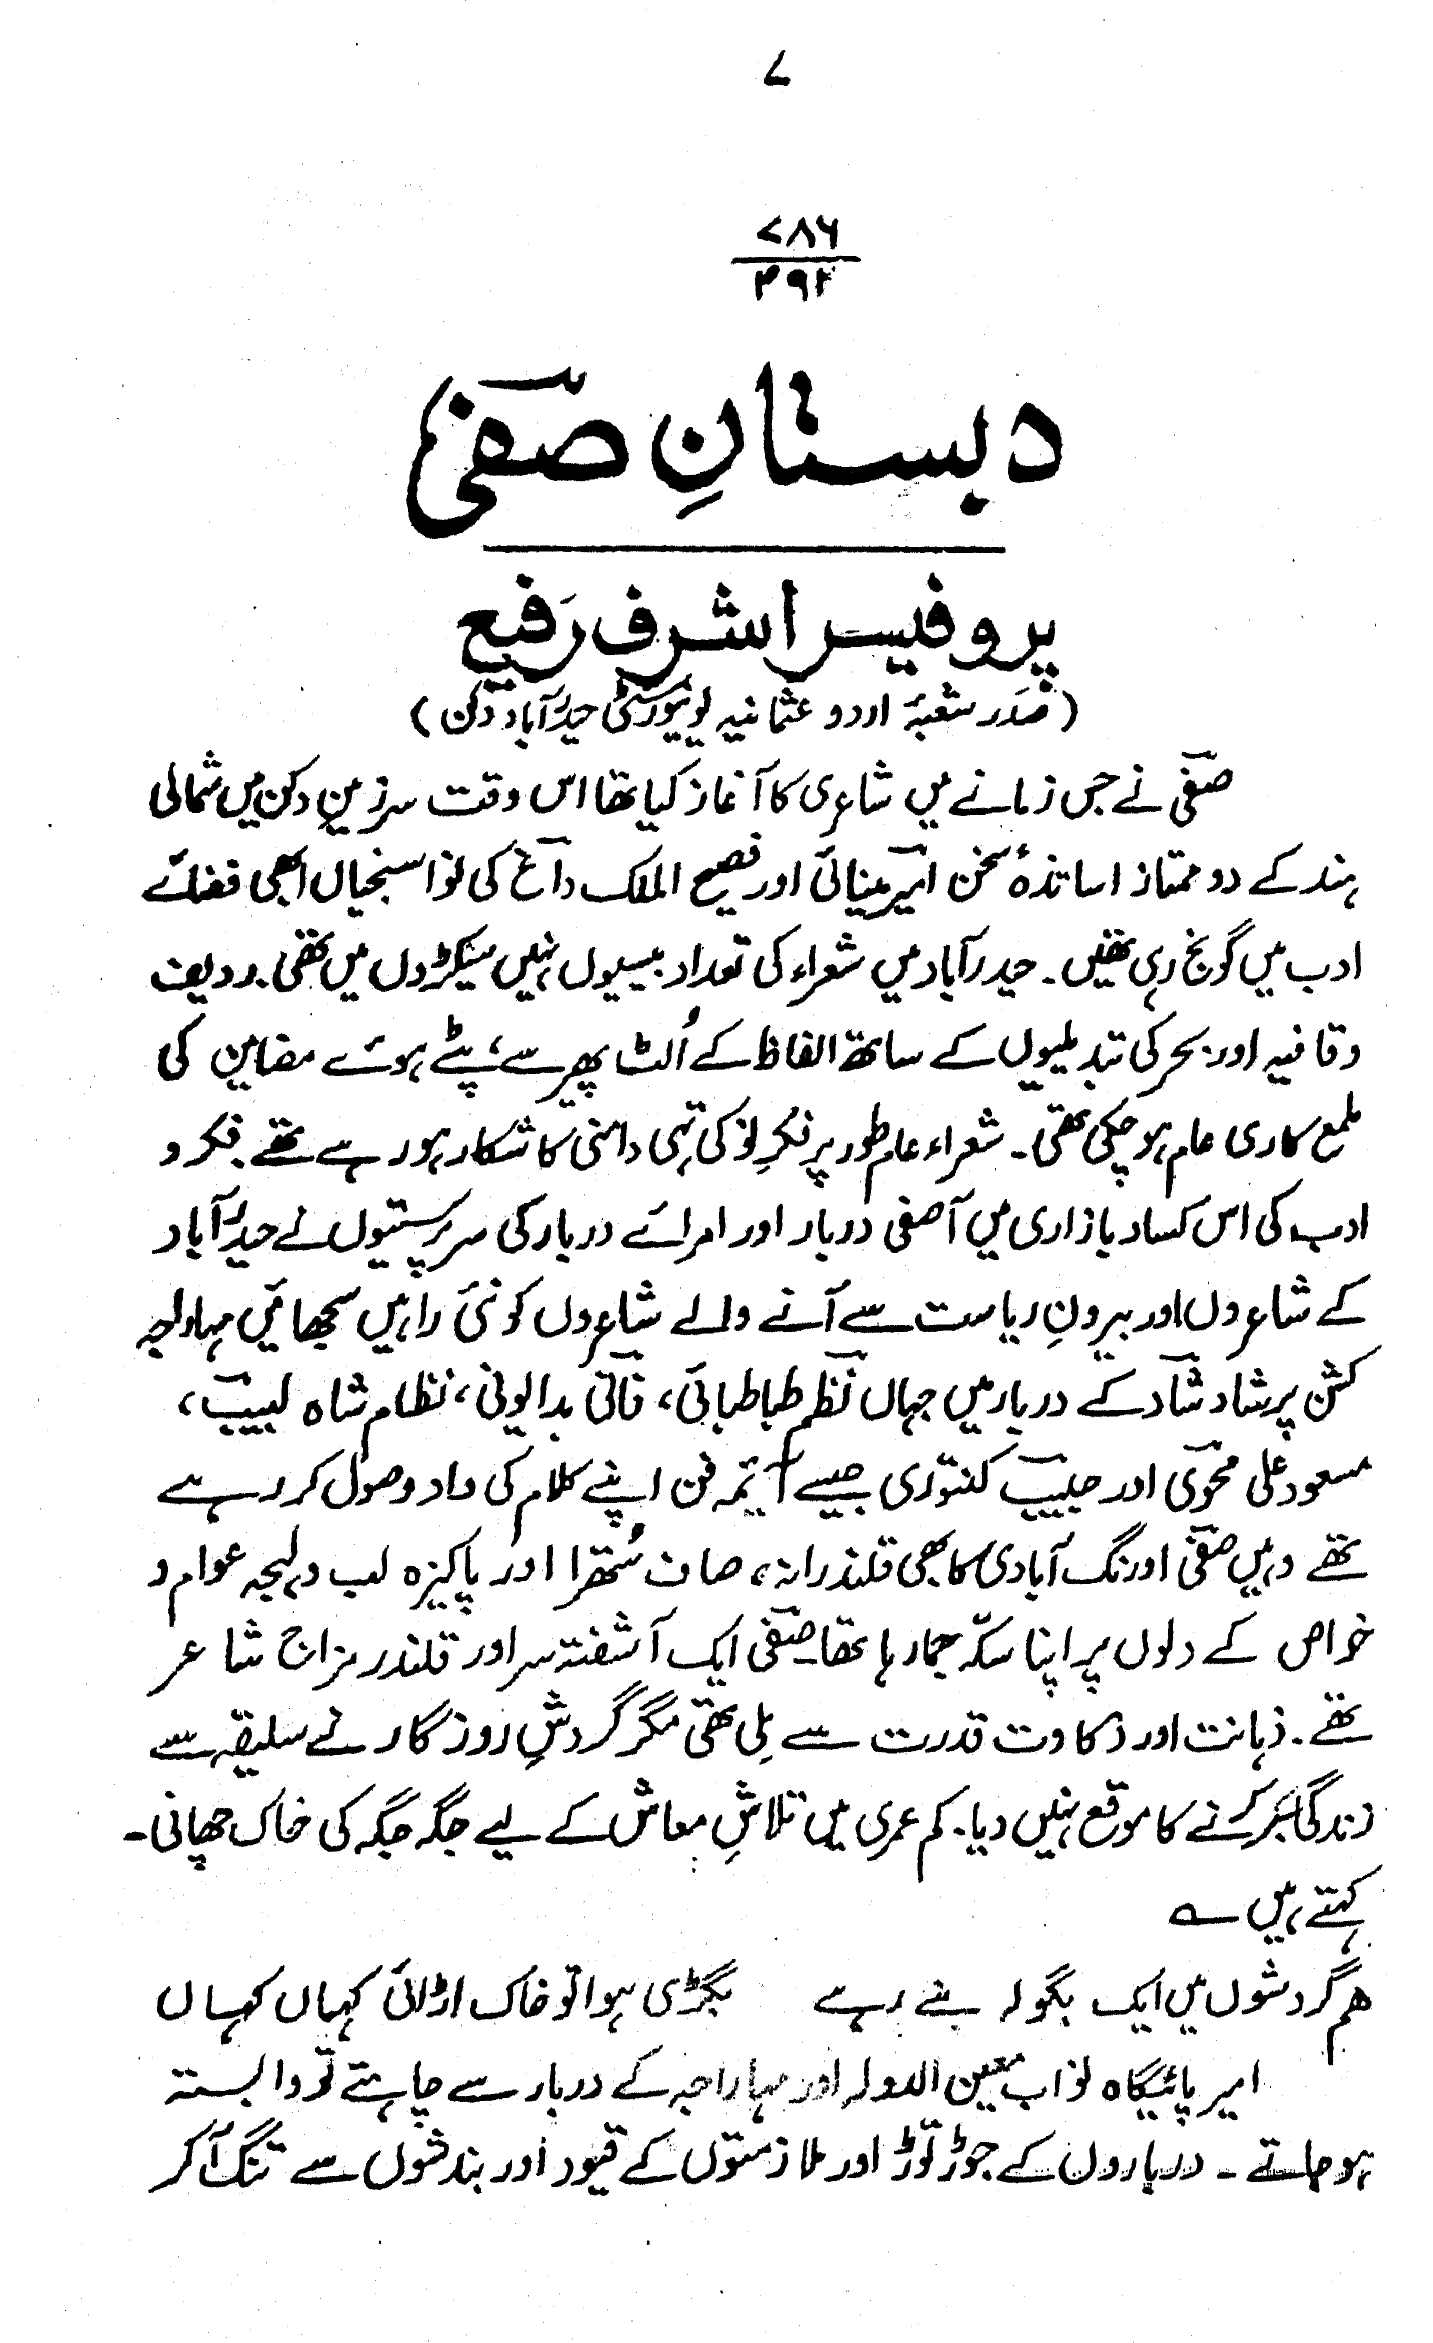 ۷
۷۸۶
۳۹۲
دبستانِ صفیؔ
پروفیسر اشرف رفیع
(صدر شعبۂ اردو عثمانیہ یونیورسٹی حیدرآباد دکن)
صفیؔ نے جس زمانے میں شاعری کا آغاز کیا تھا اس وقت سرزمینِ دکن میں شمالی
ہند کے دو ممتاز اساتذۂ سخن امیرؔ مینائی اور فصیح الملک داغؔ کی نوا سنجیاں ابھی فضائے
ادب میں گونج رہی تھیں۔ حیدرآباد میں شعراء کی تعداد بیسیوں نہیں سینکڑوں میں تھی۔ ردیف
و قافیہ اور بحر کی تبدیلیوں کے ساتھ الفاظ کے اُلٹ پھیر سے، پٹے ہوئے مضامین کی
ملمع کاری عام ہو چکی تھی۔ شعراء عام طور پر فکرِ نو کی تہی دامنی کا شکار ہو رہے تھے۔ فکر و
ادب کی اس کساد بازاری میں آصفی دربار اور امرائے دربار کی سرپرستیوں نے حیدرآباد
کے شاعروں اور بیرونِ ریاست سے آنے والے شاعروں کو نئی راہیں سجھائیں مہاراجہ
کشن پرشاد شادؔ کے دربار میں جہاں نظمؔ طباطبائی، فانیؔ بدایونی، نظام شاہ لبیبؔ،
مسعود علی محویؔ اور حبیبؔ کنتوری جیسے آئمہ فن اپنے کلام کی داد وصول کر رہے
تھے وہیں صفیؔ اورنگ آبادی کا بھی قلندرانہ، صاف سُتھرا اور پاکیزہ لب و لہجہ عوام و
خواص کے دلوں پر اپنا سکّہ جما رہا تھا۔ صفیؔ ایک آشفتہ سر اور قلندر مزاج شاعر
تھے۔ ذہانت اور ذکاوت قدرت سے مِلی تھی مگر گردشِ روزگار نے سلیقہ سے
زندگی بسر کرنے کا موقع نہیں دیا۔ کم عمری میں تلاشِ معاش کے لیے جگہ جگہ کی خاک چھانی۔
کہتے ہیں ؎
ہم گردشوں میں ایک بگولہ بنے رہے بگڑی ہوا تو خاک اڑائی کہاں کہاں
امیر پائیگاہ نواب معین الدولہ اور مہاراجہ کے دربار سے چاہتے تو وابستہ
ہو جاتے۔ درباروں کے جوڑ توڑ اور ملازمتوں کے قیود اور بندشوں سے تنگ آ کر